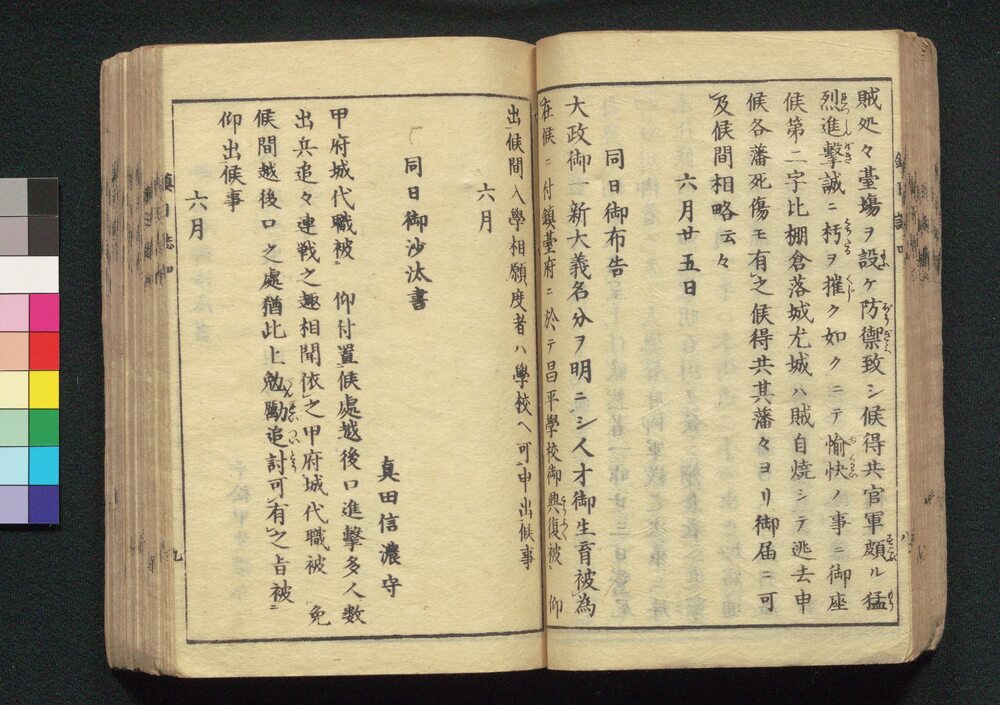 賊処々臺塲ヲ設ケ防禦致シ候得共官軍頗ル猛
烈進擊誠ニ朽ヲ摧ク如クニテ愉快ノ事ニ御座
候第二字比棚倉落城尤城ハ賊自焼シテ逃去申
候各藩死傷モ有之候得共其藩々ヨリ御届ニ可
及候間相略云々
六月廿五日
同日御布告
大政御一新大義名分ヲ明ニシ人才御生育被為
在候ニ付鎮臺府ニ於テ昌平學校御興復被 仰
出候間入學相願度者ハ學校ヘ可申出候事
六月
同日御沙汰書
真田信濃守
甲府城代職被 仰付置候處越後口進擊多人數
出兵追々連戦之趣相聞依之甲府城代職被 免
候間越後口之處猶此上勉勵追討可有之旨被
仰出候事
六月